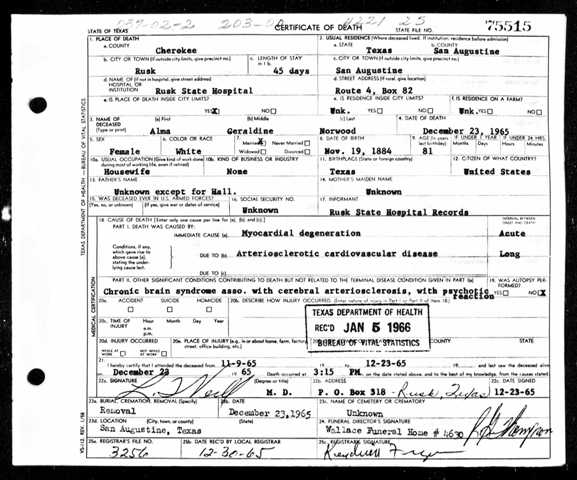 037-02-2 203-00 4221 25
STATE OF TEXAS CERTIFICATE OF DEATH STATE FILE NO. 75515
1. PLACE OF DEATH 2. USUAL RESIDENCE (Where deceased lived. If institution, residence before admission)
a. COUNTY a. STATE b. COUNTY
Cherokee Texas San Augustine
b. CITY OR TOWN (If outside city limits, give precinct no.) c. LENGTH OF STAY c. CITY OR TOWN (If outside city limits, give precinct no.)
Rusk 45 days San Augustine
d. NAME OF (If not in hospital, give street address) d. STREET ADDRESS (If rural, give location)
HOSPITAL OR
INSTITUTION Rusk State Hospital Route 4, Box 82
e. IS PLACE OF DEATH INSIDE CITY LIMITS? e. IS RESIDENCE INSIDE CITY LIMITS? f. IS RESIDENCE ON A FARM?
YES X NO Unk. NO Unk. NO
3. NAME OF DECEASED (Type or print) (a) First (b) Middle (c) Last 4. DATE OF DEATH
Alma Geraldine Norwood December 23, 1965
5. SEX 6. COLOR OR RACE 7. Married X Never Married Widowed Divorced 8. DATE OF BIRTH 9. AGE (In years last birthday) IF UNDER 1 YEAR Months Days IF UNDER 24 HRS. Hours Min.
Female White Nov. 19, 1884 81
10a. USUAL OCCUPATION (Give kind of work done during most of working life, even if retired) 10b. KIND OF BUSINESS OR INDUSTRY 11. BIRTHPLACE (State or foreign country) 12. CITIZEN OF WHAT COUNTRY?
Housewife None Texas United States
13. FATHER'S NAME 14. MOTHER'S MAIDEN NAME
Unknown except for Hall. Unknown
15. WAS DECEASED EVER IN U.S. ARMED FORCES? (Yes, no, or unknown) (If yes, give war or dates of service) 16. SOCIAL SECURITY NO. 17. INFORMANT
Unknown Rusk State Hospital Records
18. CAUSE OF DEATH [Enter only one cause per line for (a), (b) and (c).] INTERVAL BETWEEN ONSET AND DEATH
PART I. DEATH WAS CAUSED BY:
IMMEDIATE CAUSE (a) Myocardial degeneration Acute
Conditions, if any, which gave rise to above cause (a), stating the underlying cause last.
DUE TO (b) Arteriosclerotic cardiovascular disease Long
DUE TO (c)
PART II. OTHER SIGNIFICANT CONDITIONS CONTRIBUTING TO DEATH BUT NOT RELATED TO THE TERMINAL DISEASE CONDITION GIVEN IN PART I(a) 19. WAS AUTOPSY PERFORMED?
Chronic brain syndrome asso. with cerebral arteriosclerosis, with psychotic reaction YES NO X
20a. ACCIDENT SUICIDE HOMICIDE 20b. DESCRIBE HOW INJURY OCCURRED. (Enter nature of injury in Part I or Part II of item 18.)
20c. TIME OF INJURY Hour Month Day Year
a.m.
p.m.
TEXAS DEPARTMENT OF HEALTH
REC'D JAN 5 1966
BUREAU OF VITAL STATISTICS
20d. INJURY OCCURRED 20e. PLACE OF INJURY (e.g., in or about home, farm, factory, street, office building, etc.) COUNTY STATE
WHILE AT WORK NOT WHILE AT WORK
21. I hereby certify that I attended the deceased from 11-9-65 12-23-65 and last saw the deceased alive
December 23 65 Death occurred at 3:15 PM on the date stated above, and to the best of my knowledge, from the causes stated
22a. SIGNATURE (Degree or title) 22b. ADDRESS 22c. DATE SIGNED
M. D. P. O. Box 318 - Rusk, Texas 12-23-65
23a. BURIAL, CREMATION, REMOVAL (Specify) 23b. DATE 23c. NAME OF CEMETERY OR CREMATORY
Removal December 23, 1965 Unknown
23d. LOCATION (City, town, or county) (State) 24. FUNERAL DIRECTOR'S SIGNATURE
San Augustine, Texas Wallace Funeral Home #4630
25a. REGISTRAR'S FILE NO. 25b. DATE REC'D BY LOCAL REGISTRAR 25c. REGISTRAR'S SIGNATURE
3256 12-30-65
TEXAS DEPARTMENT OF HEALTH — BUREAU OF VITAL STATISTICS
MEDICAL CERTIFICATION
VS-112 REV. 1/58